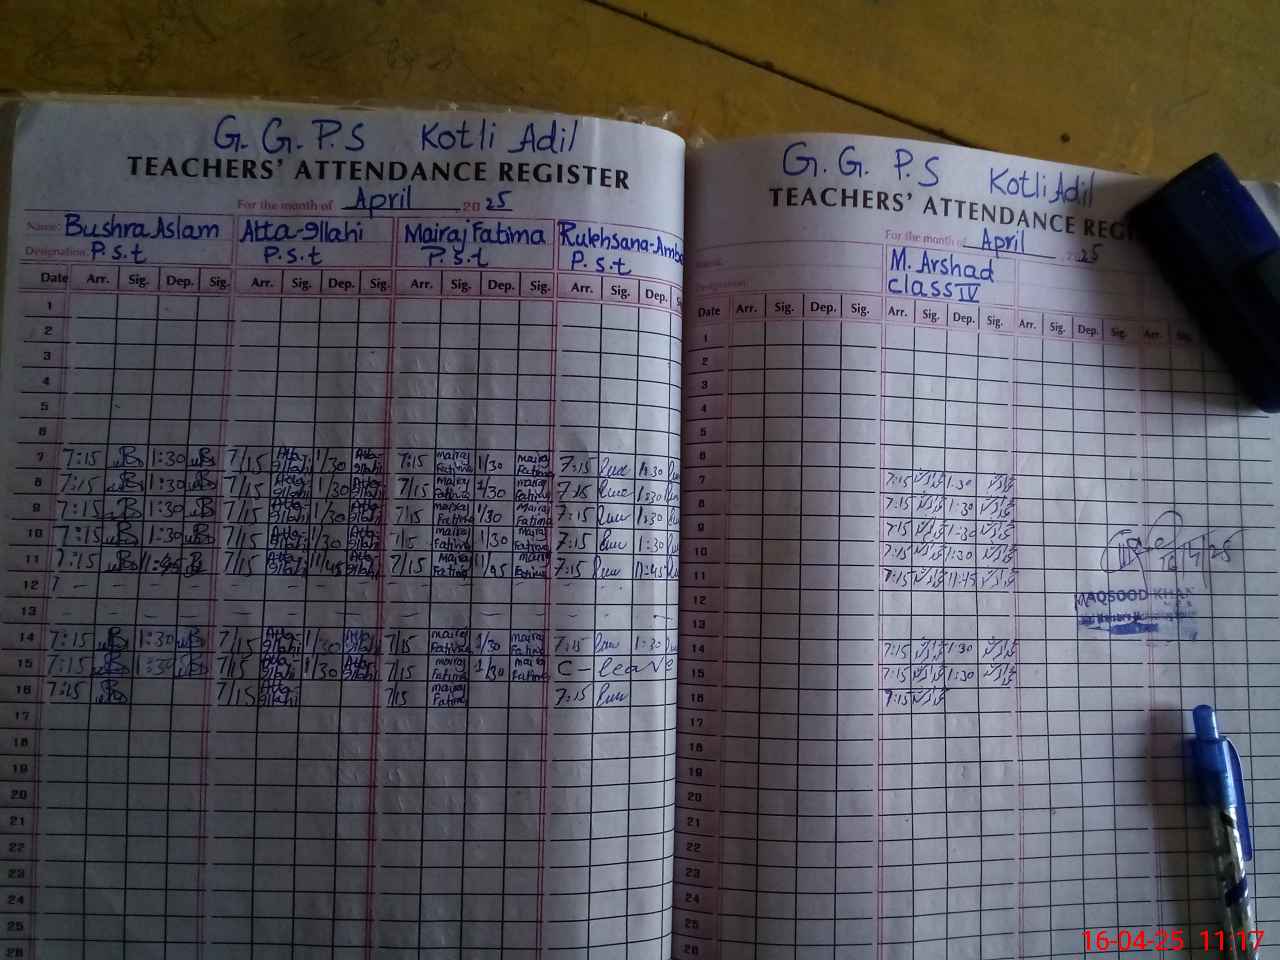 G. G. P. S Kotli Adil
TEACHERS' ATTENDANCE REGISTER
For the month of April 2025
Name: Bushra Aslam Atta-Illahi Mairaj Fatima
Designation: P.S.t P.S.t P.S.t P.S.t
Date Arr. Sig. Dep. Sig. Arr. Sig. Dep. Sig. Arr. Sig. Dep. Sig. Arr. Sig. Dep.
1
2
3
4
5
6
7 7:15 1:30 7/15 Atta-Illahi 1/30 Atta-Illahi 7:15 mairaj Fatima 1/30 mairaj Fatima 7:15 1:30
8 7:15 1:30 7/15 Atta-Illahi 1/30 Atta-Illahi 7/15 mairaj Fatima 1/30 mairaj Fatima 7:15 1:30
9 7:15 1:30 7/15 Atta-Illahi 1/30 Atta-Illahi 7/15 mairaj Fatima 1/30 mairaj Fatima 7:15 1:30
10 7:15 1:30 7/15 Atta-Illahi 1/30 Atta-Illahi 7/15 mairaj Fatima 1/30 mairaj Fatima 7:15 1:30
11 7:15 11:45 7/15 Atta-Illahi 11/45 Atta-Illahi 7/15 mairaj Fatima 11/45 mairaj Fatima 7:15 11:45
12
13
14 7:15 1:30 7/15 Atta-Illahi 1/30 Atta-Illahi 7/15 mairaj Fatima 1/30 mairaj Fatima 7:15 1:30
15 7:15 1:30 7/15 Atta-Illahi 1/30 Atta-Illahi 7/15 mairaj Fatima 1/30 mairaj Fatima C-leave
16 7:15 7/15 Atta-Illahi 7/15 mairaj Fatima 7:15
17
18
19
20
21
22
23
24
25
26
G. G. P. S Kotli Adil
TEACHERS' ATTENDANCE
For the month of April 2025
Name: M. Arshad
Designation: class IV
Date Arr. Sig. Dep. Sig. Arr. Sig. Dep. Sig. Arr. Sig. Dep. Sig. Arr. Sig.
1
2
3
4
5
6
7 7:15 1:30
8 7:15 1:30
9 7:15 1:30
10 7:15 1:30
11 7:15 11:45
12
13
14 7:15 1:30
15 7:15 1:30
16 7:15
17
18
19
20
21
22
23
24
25
26
16/4/25
MAQSOOD KHAN
16-04-25 11:17